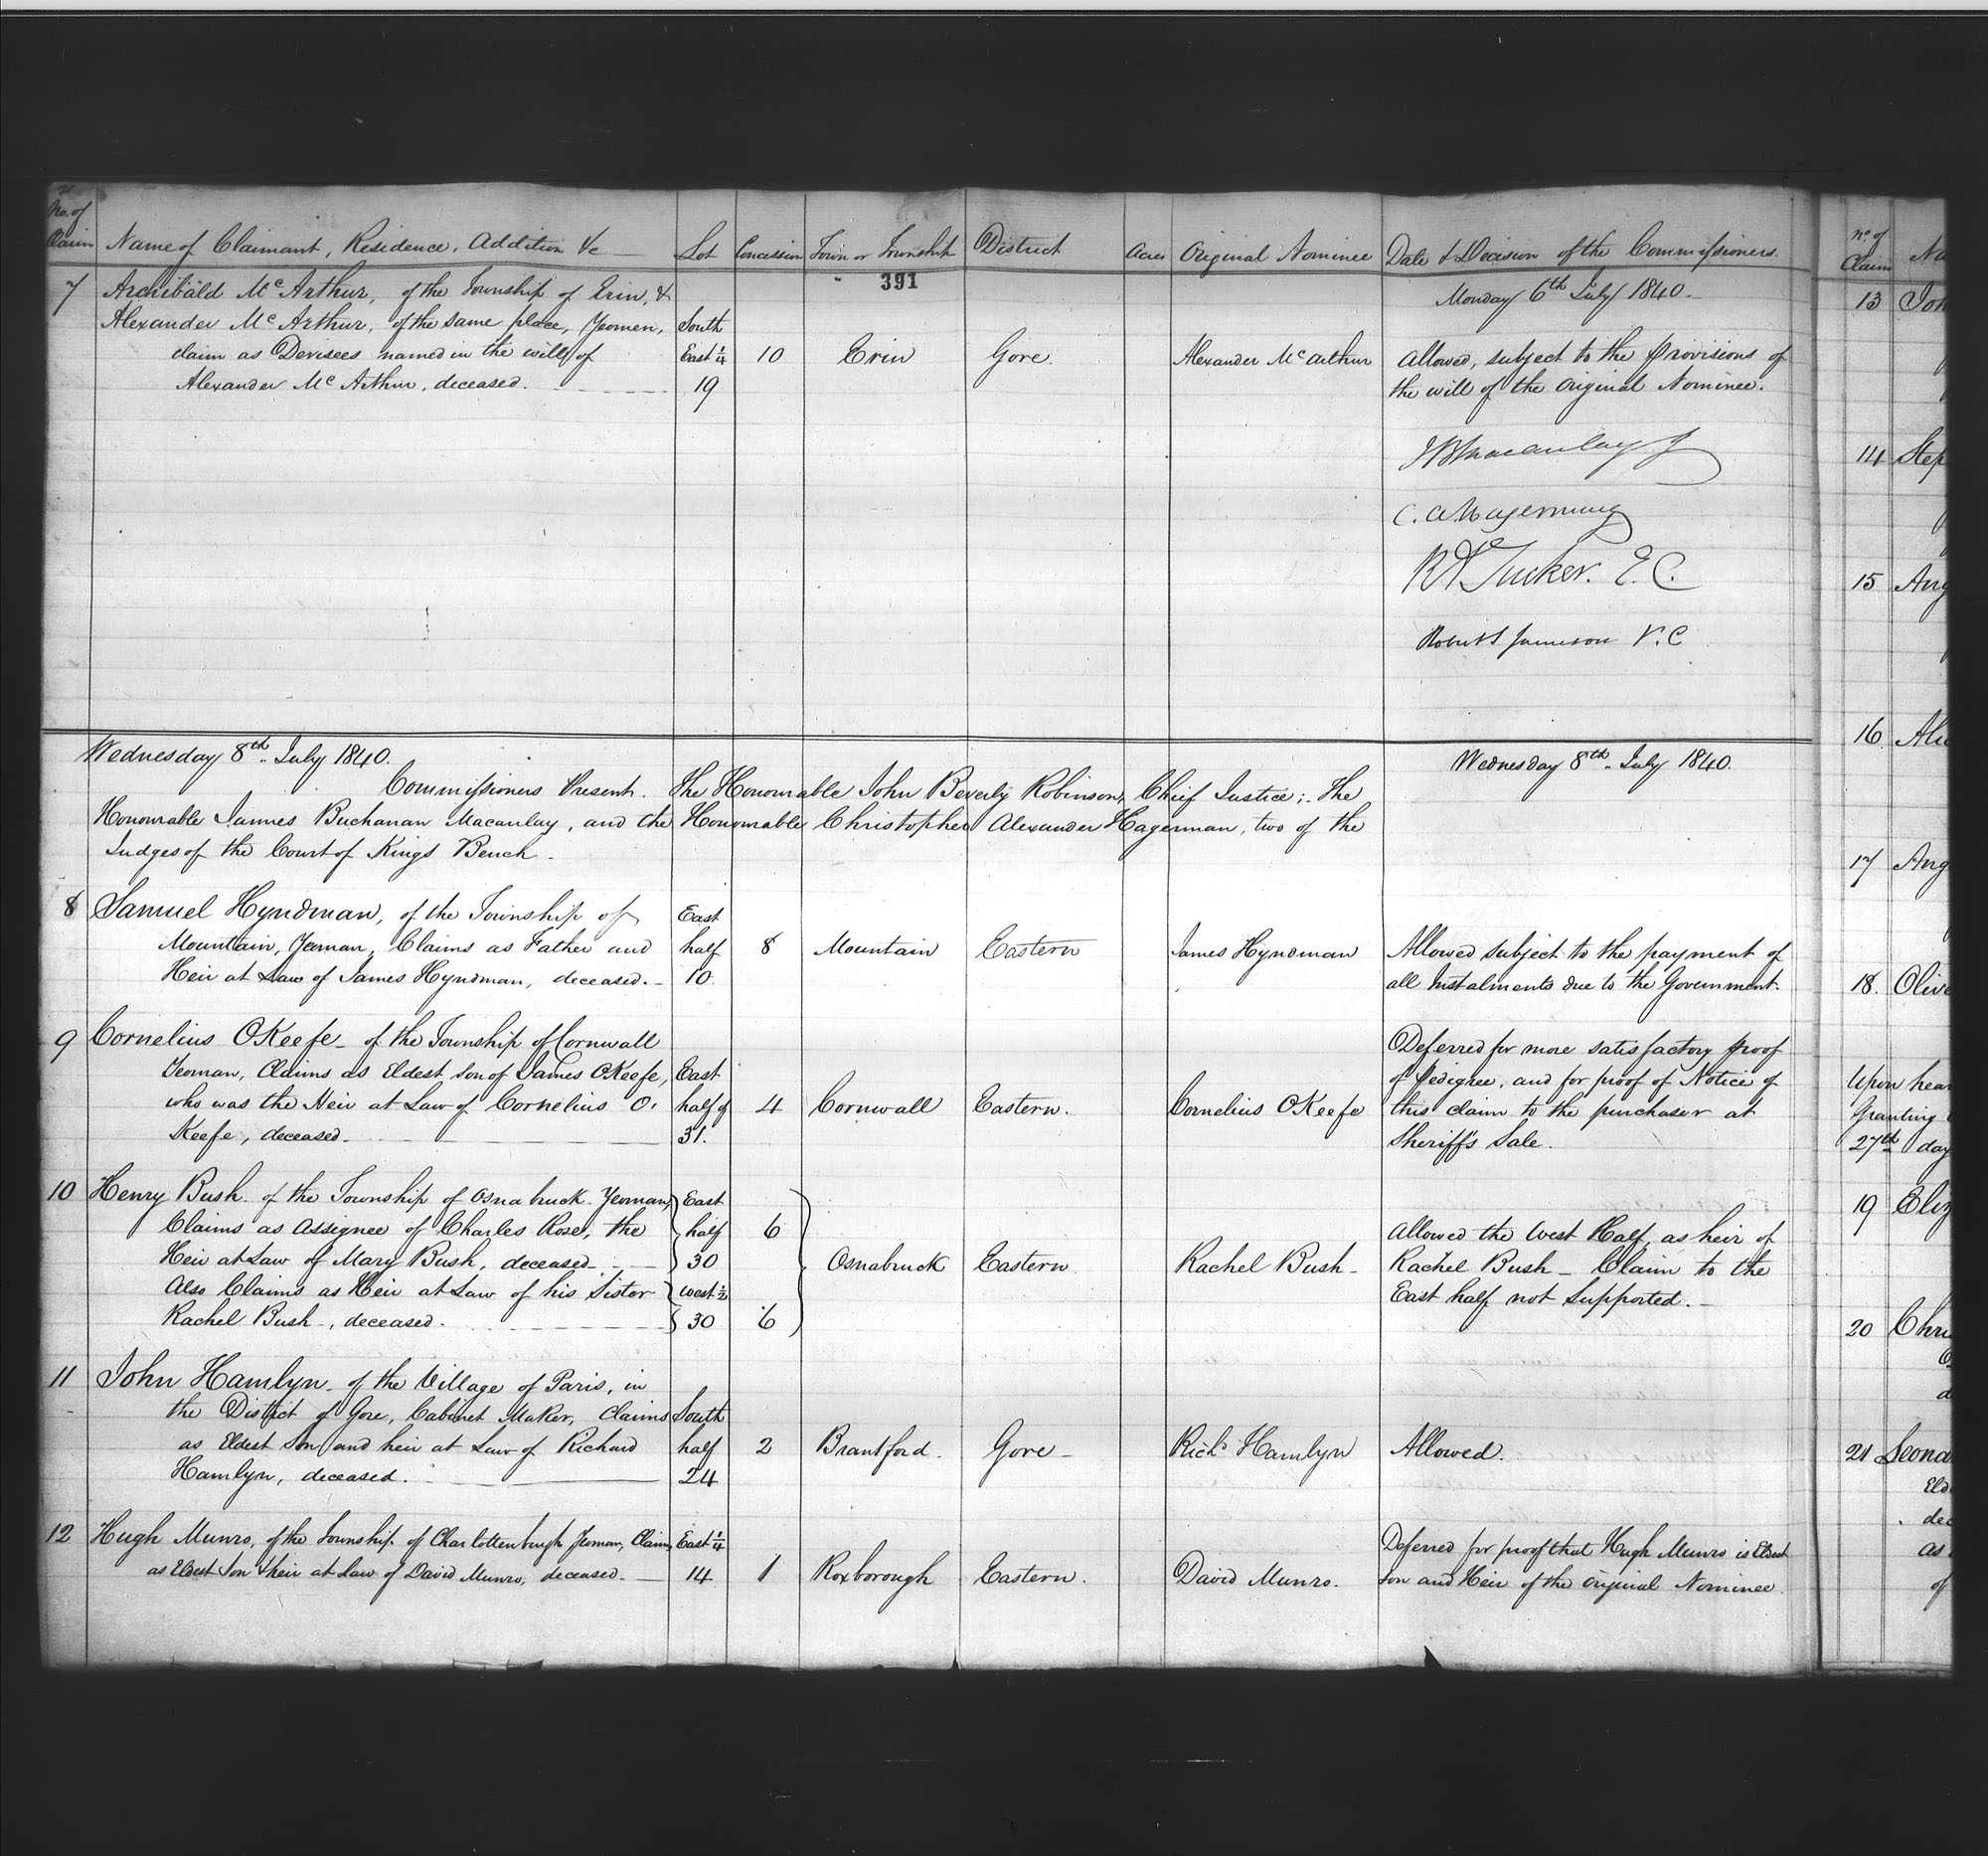 No. of Claim Name of Claimant, Residence, Addition &c Lot Concession Town or Township District Acres Original Nominee Date & Decision of the Commissioners.
391
Monday 6th July 1840.
7 Archibald McArthur, of the Township of Erin, &
Alexander McArthur, of the same place, Yeomen, South
claim as Devisees named in the will of East 1/4 10 Erin Gore Alexander McArthur Allowed, subject to the provisions of
Alexander McArthur, deceased. 19 the will of the Original Nominee.
J B Macaulay J
C. A. Hagerman
R A Tucker. E.C.
Robert S Jameson V.C
Wednesday 8th July 1840. Wednesday 8th July 1840.
Commissioners Present. The Honourable John Beverly Robinson, Chief Justice; The
Honourable James Buchanan Macaulay, and the Honourable Christopher Alexander Hagerman, two of the
Judges of the Court of Kings Bench.
8 Samuel Hyndman, of the Township of East
Mountain, Yeoman, Claims as Father and half 8 Mountain Eastern James Hyndman Allowed subject to the payment of
Heir at Law of James Hyndman, deceased. 10. all Instalments due to the Government.
9 Cornelius OKeefe of the Township of Cornwall Deferred for more satisfactory proof
Yeoman, Claims as Eldest son of James OKeefe, East of Pedigree, and for proof of Notice of
who was the Heir at Law of Cornelius O' half of 4 Cornwall Eastern. Cornelius OKeefe this claim to the purchaser at
Keefe, deceased. 31. Sheriff's Sale.
10 Henry Bush of the Township of Osnabruck Yeoman, East
Claims as Assignee of Charles Rose, the half 6 Allowed the West Half, as heir of
Heir at Law of Mary Bush, deceased 30 Osnabruck Eastern. Rachel Bush Rachel Bush - Claim to the
Also Claims as Heir at Law of his Sister West 1/2 East half not Supported.
Rachel Bush, deceased. 30 6
11 John Hamlyn of the Village of Paris, in
the District of Gore, Cabinet Maker, Claims South
as Eldest Son and heir at Law of Richard half 2 Brantford. Gore Richd Hamlyn Allowed.
Hamlyn, deceased. 24
12 Hugh Munro, of the Township of Charlottenburgh Yeoman, Claims East 1/4 Deferred for proof that Hugh Munro is Eldest
as Eldest Son & heir at Law of David Munro, deceased. 14 1 Roxborough Eastern. David Munro. Son and Heir of the Original Nominee.
No. of
Claim Na
13 Joh
14 Step
15 Ang
16 Ale
17 Ang
18. Olive
Upon hear
Granting
27th day
19 Eliz
20 Chri
21 Leona
Eld
dec
as
of